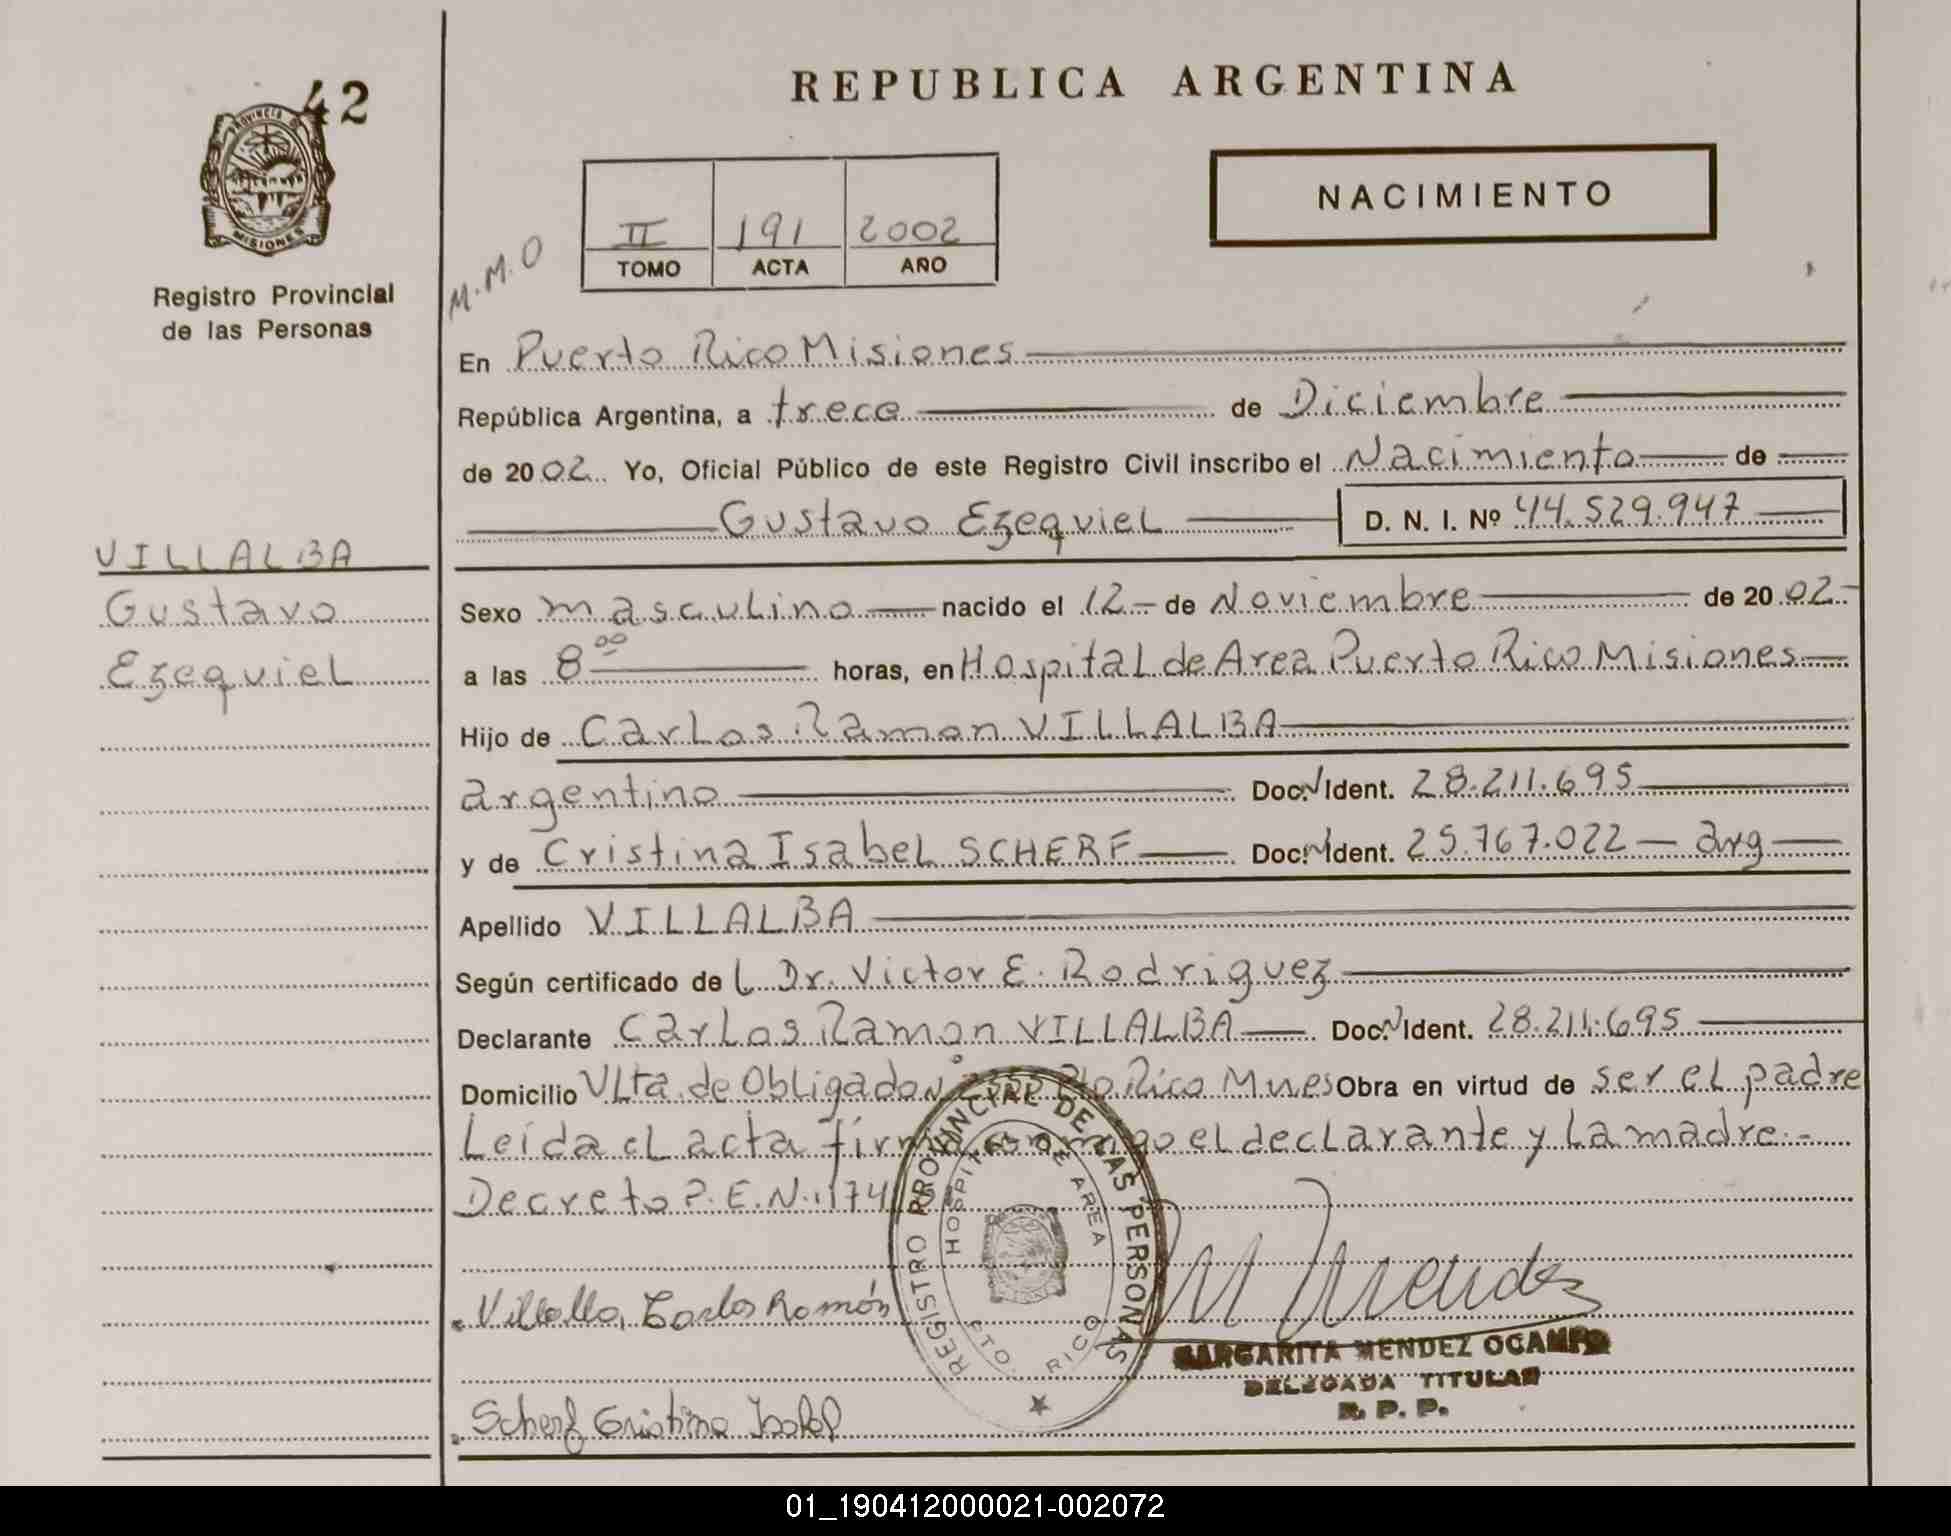 42
PROVINCIA DE
MISIONES
Registro Provincial
de las Personas
VILLALBA
Gustavo
Ezequiel
REPUBLICA ARGENTINA
NACIMIENTO
II 191 2002
TOMO ACTA AÑO
M.M.O
En Puerto Rico Misiones
República Argentina, a trece de Diciembre
de 2002 Yo, Oficial Público de este Registro Civil inscribo el Nacimiento de
Gustavo Ezequiel D. N. I. Nº 44.529.947
Sexo masculino nacido el 12 de Noviembre de 2002
a las 8 00 horas, en Hospital de Area Puerto Rico Misiones
Hijo de Carlos Ramon VILLALBA
argentino Doc. Ident. 28.211.695
y de Cristina Isabel SCHERF Doc. Ident. 25.767.022 arg
Apellido VILLALBA
Según certificado de L Dr. Victor E. Rodriguez
Declarante Carlos Ramon VILLALBA Doc. Ident. 28.211.695
Domicilio Vlta. de Obligado Pto Rico Mnes Obra en virtud de ser el padre
Leída el acta firma conmigo el declarante y la madre.-
Decreto P.E.N. 1174
REGISTRO PROVINCIAL DE LAS PERSONAS
HOSPITAL DE AREA
PTO. RICO
Villalba, Carlos Ramón
M Mendez
MARGARITA MENDEZ OCAMPO
DELEGADA TITULAR
R. P. P.
Scherf Cristina Isabel
01_190412000021-002072